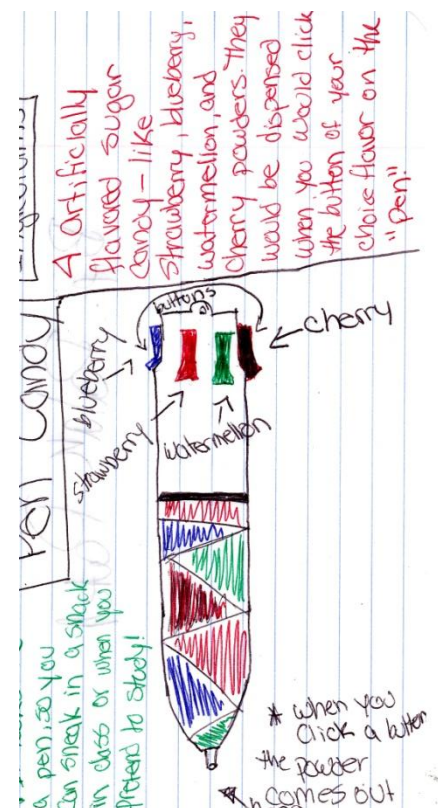 4 Artificially
flavored sugar
Candy-like
Strawberry, blueberry,
watermellon, and
Cherry powders. They
would be dispensed
when you would click
the button of your
choise flavor on the
"pen"
Pen Candy
buttons
blueberry
strawberry
watermellon
cherry
a pen, so you
can sneak in a snack
in class or when you
Pretend to study!
* when you
Click a button
the powder
comes out